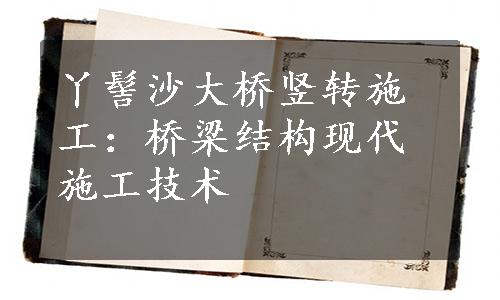 丫髻沙大桥竖转施
工：桥梁结构现代
施工技术